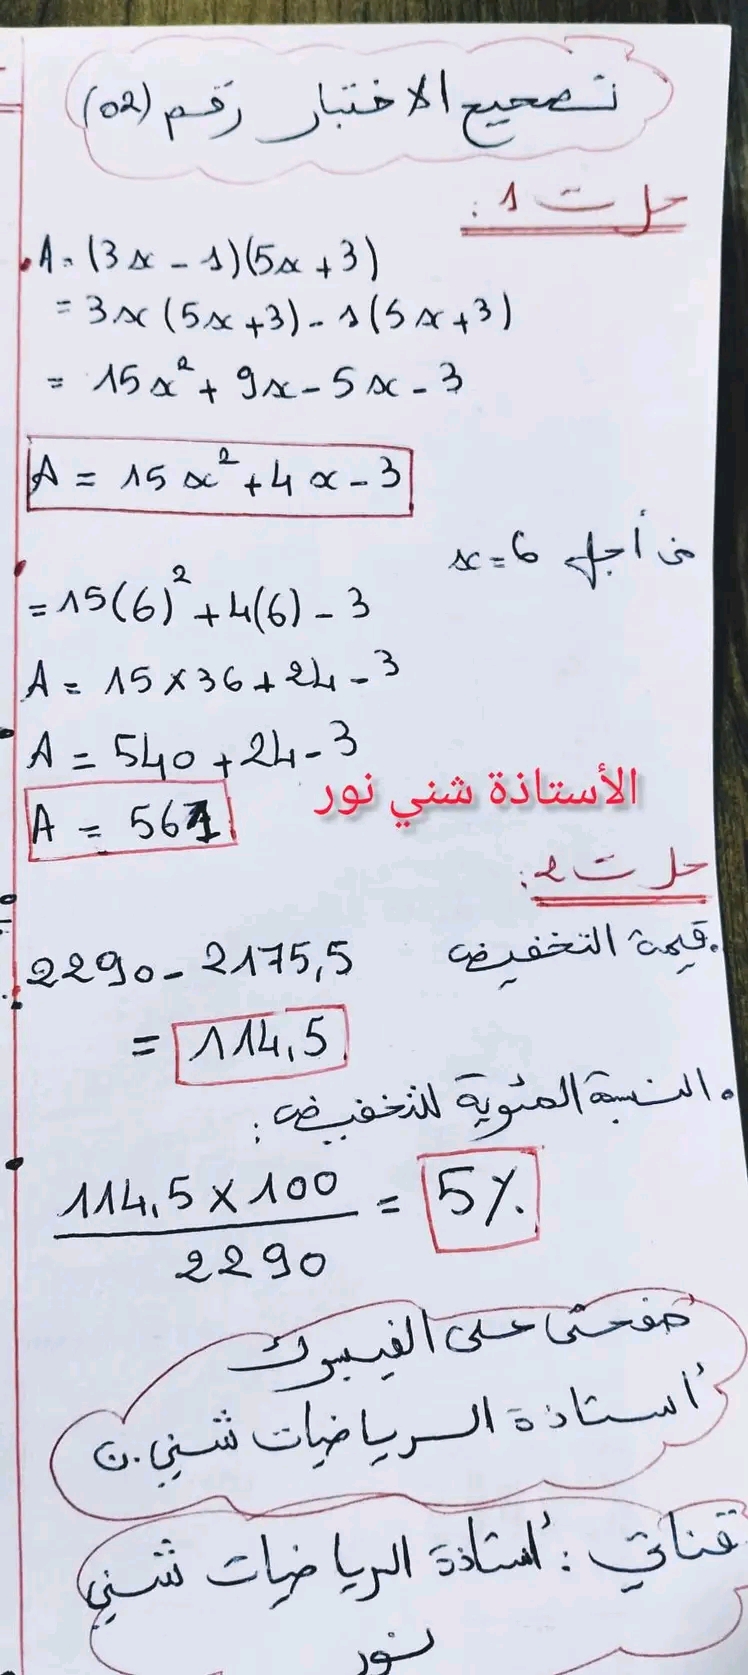 تصحيح الاختبار رقم (02)
حل ت 1 :
A = (3x - 1)(5x + 3)
= 3x (5x + 3) - 1 (5x + 3)
= 15x² + 9x - 5x - 3
A = 15x² + 4x - 3
من أجل x = 6
= 15(6)² + 4(6) - 3
A = 15 × 36 + 24 - 3
A = 540 + 24 - 3
A = 561
الأستاذة شني نور
حل ت 2 :
قيمة التخفيض
2290 - 2175,5
= 114,5
النسبة المئوية للتخفيض :
114,5 × 100
2290
= 5%
صفحتي على الفيسبوك
أستاذة الرياضيات شني.ن
قناتي : أستاذة الرياضيات شني
نور